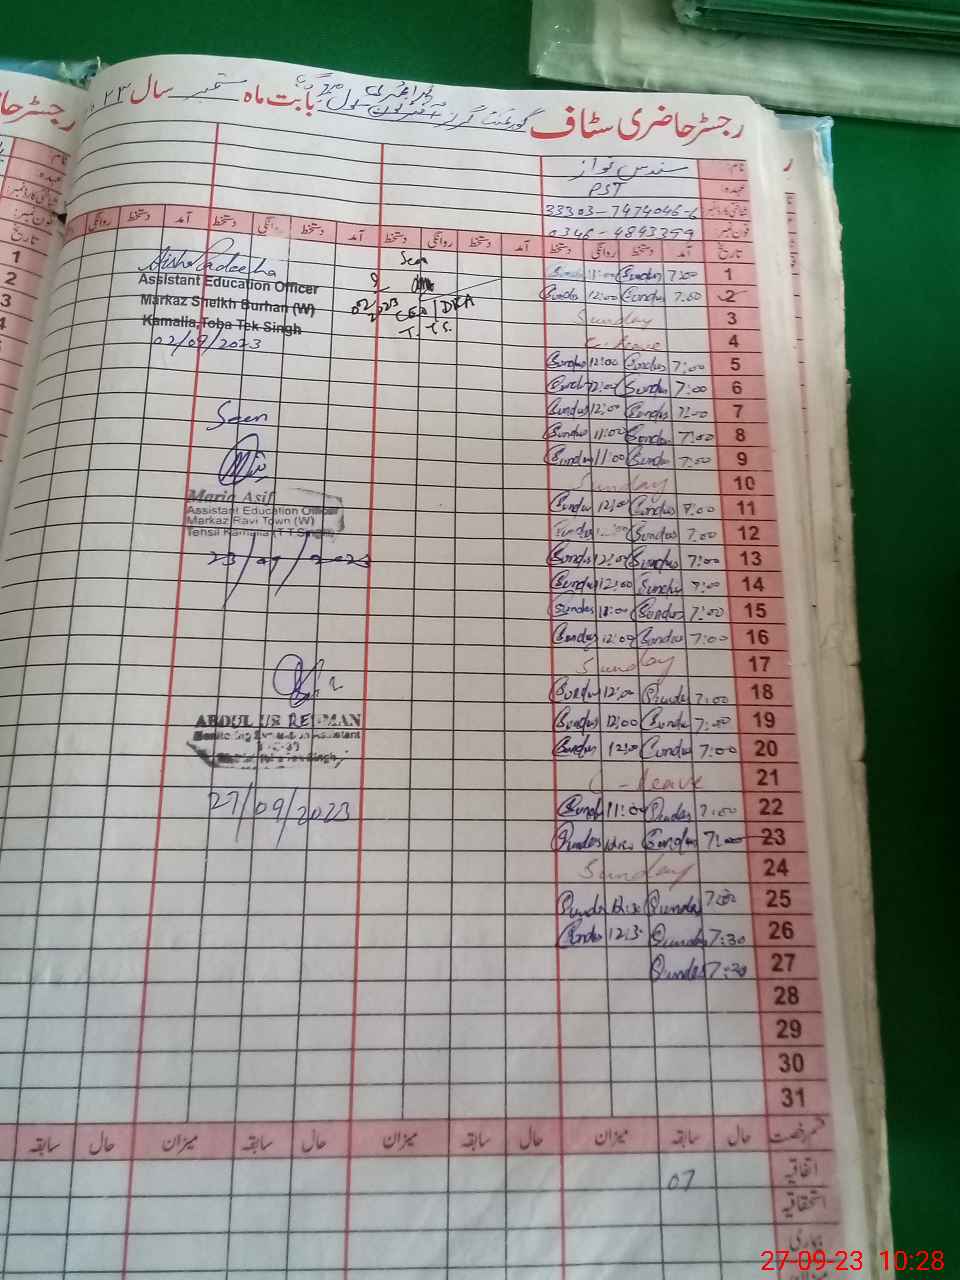 رجسٹر حاضری سٹاف
گورنمنٹ گرلز پرائمری سکول
بابت ماہ ستمبر سال ۲۳
نام: سندس نواز
عہدہ: PST
شناختی کارڈ نمبر: 33303-7474046-6
فون نمبر: 0346-4893399
تاریخ آمد دستخط روانگی دستخط آمد دستخط روانگی دستخط آمد دستخط روانگی دستخط آمد دستخط روانگی
1 7:00 Sundus 11:00
2 7:00 Sundus 12:00 Sundus
3 Sunday
4 C-leave
5 7:00 Sundus 12:00 Sundus
6 7:00 Sundus 12:00 Sundus
7 7:00 Sundus 12:00 Sundus
8 7:00 Sundus 11:00 Sundus
9 7:00 Sundus 11:00 Sundus
10 Sunday
11 7:00 Sundus 12:00 Sundus
12 7:00 Sundus
13 7:00 Sundus 12:00 Sundus
14 7:00 Sundus 12:00 Sundus
15 7:00 Sundus 11:00 Sundus
16 7:00 Sundus 12:00 Sundus
17 Sunday
18 7:00 Sundus 12:00 Sundus
19 7:00 Sundus 12:00 Sundus
20 7:00 Sundus 12:00 Sundus
21 C-leave
22 7:00 Sundus 11:00 Sundus
23 7:00 Sundus Sundus
24 Sunday
25 Sundus 12:30 Sundus
26 7:30 Sundus 12:30 Sundus
27 7:30 Sundus
28
29
30
31
قسم رخصت حال سابقہ میزان حال سابقہ میزان حال سابقہ میزان حال سابقہ
اتفاقیہ 07
استحقاقیہ
بیماری
Seen
CEO (DEA)
T.T.S.
Assistant Education Officer
Markaz Sheikh Burhan (W)
Kamalia, Toba Tek Singh
02/09/2023
Seen
Maria Asif
Assistant Education Officer
Markaz Ravi Town (W)
Tehsil Kamalia (T T Singh)
23/09/2023
ABDUL UR REHMAN
27/09/2023
27-09-23 10:28